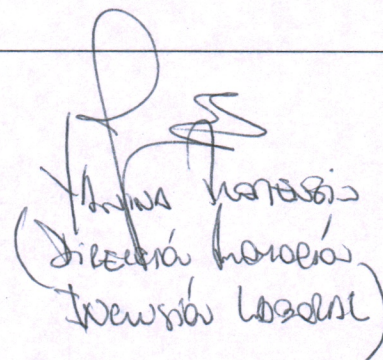 YANINA
(DIRECCIÓN PROMOCIÓN
INCLUSIÓN LABORAL)